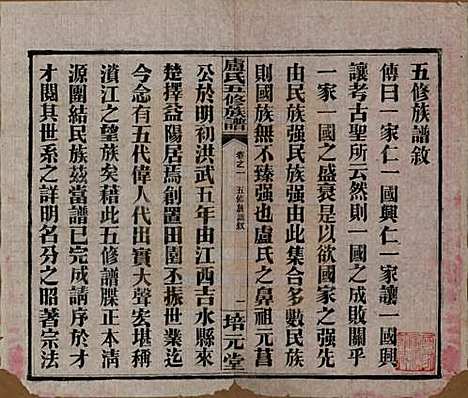 五修族譜敘
傳曰一家仁一國興仁一家讓一國興
讓考古聖所云然則一國之成敗關乎
一家一國之盛衰是以欲國家之强先
由民族强民族强由此集合多數民族
則國族無不臻强也盧氏之鼻祖元菖
盧氏五修族譜
卷之一 五修族譜敘 一
培元堂
公於明初洪武五年由江西吉水縣來
楚擇益陽居焉創置田園丕振世業迄
今念有五代偉人代出實大聲宏堪稱
濱江之望族矣藉此五修譜牒正本清
源團結民族茲當譜已完成請序於才
才閱其世系之詳明名分之昭著宗法